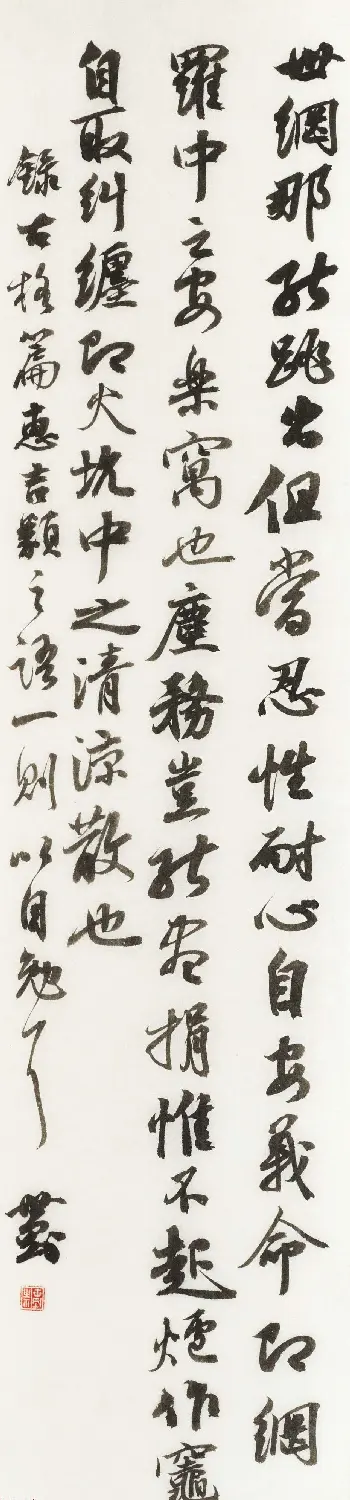 世網那能跳出但當忍性耐心自安義命即網
羅中之安樂窩也塵務豈能盡捐惟不起爐作竈
自取糾纏即火坑中之清涼散也
錄古格篇惠吉類之語一則以自勉